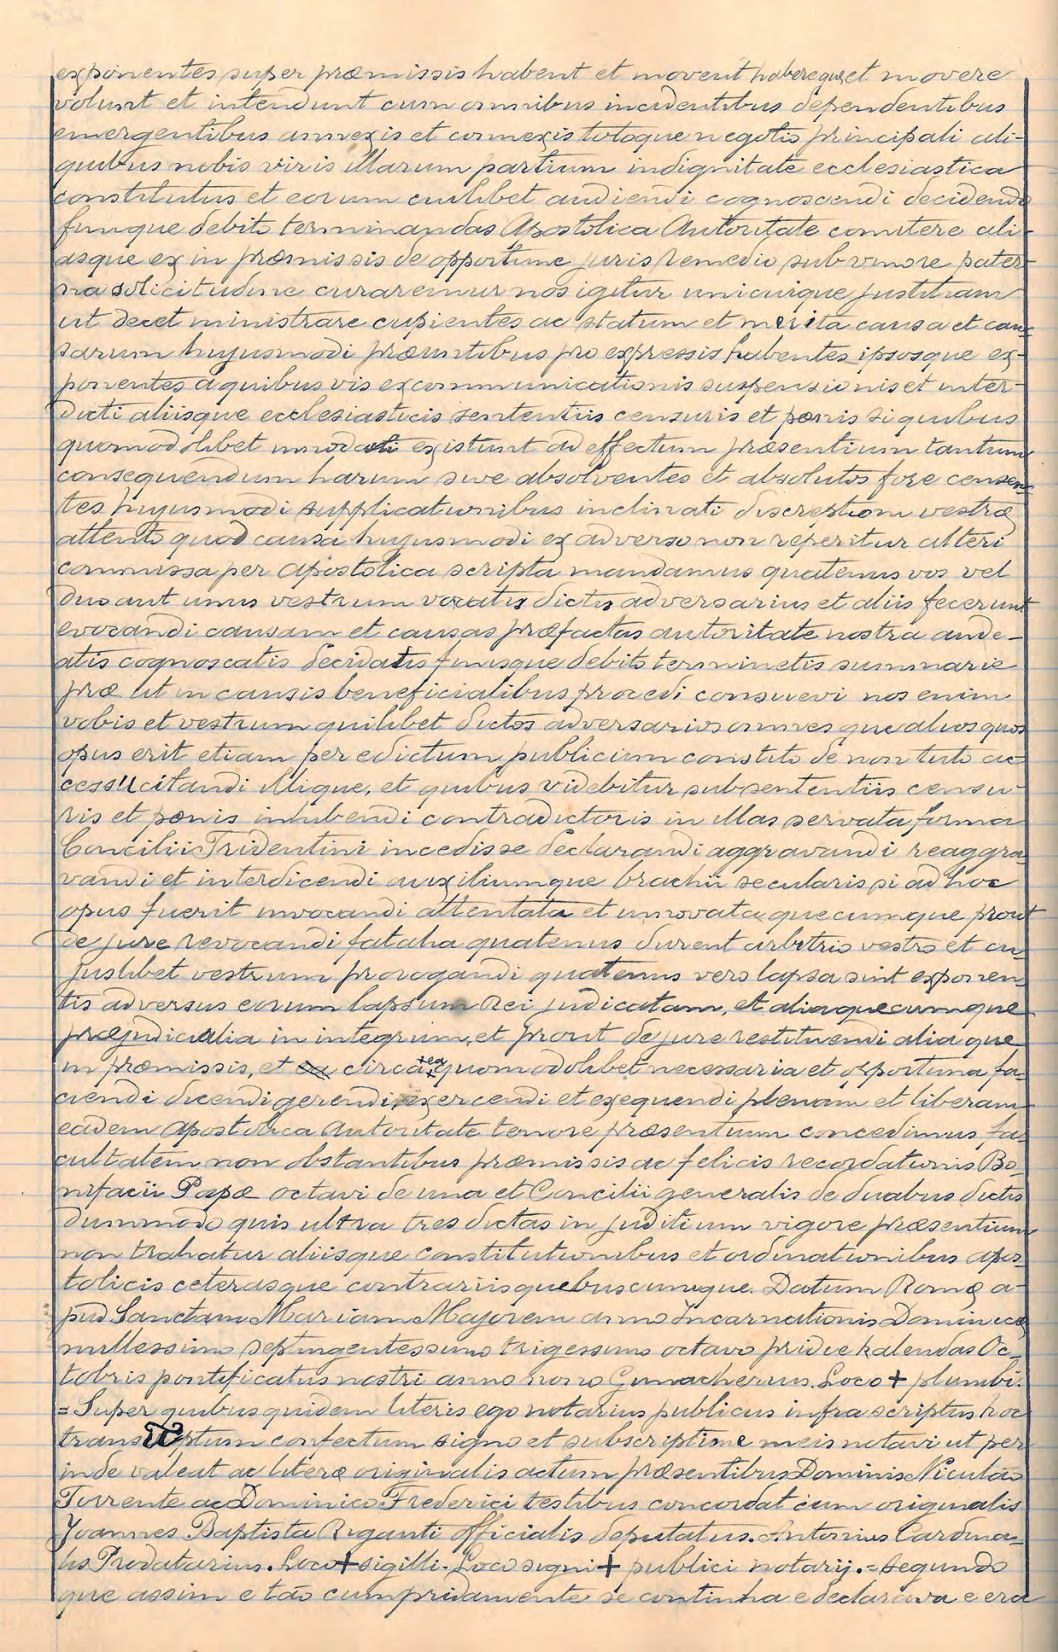 exponentes super præmissis habent et movent habereque et movere
volunt et intendunt cum omnibus incidentibus dependentibus
emergentibus annexis et connexis totoque negotio principali ali-
quibus nobis viris illarum partium in dignitate ecclesiastica
constitutus et eorum cuilibet audiendi cognoscendi decidendi
finique debito terminandas Apostolica Autoritate comitere ali-
asque ex in præmissis de opportune juris remedio sub vmore pater-
na solicitudine curaremur nos igitur unicuique justitiam
ut decet ministrare cupientes ac statum et merita causa et cau-
sarum hujusmodi præsintibus pro expressis habentes ipsosque ex-
ponentes a quibus vis excommunicationis suspensionis et inter-
dicti aliisque ecclesiasticis sententiis censuris et pœnis si quibus
quomodolibet innodati existunt ad effectum præsentium tantum
consequendum harum sive absolventes et absolutos fore censen-
tes hujusmodi supplicationibus inclinati discrestiom vestræ
attento quod causa hujusmodi ex adverso non reperitur alteri
commissa per apostolica scripta mandamus quatenus vos vel
duo aut unus vestrum vocatis dictis adversarius et aliis fecerunt
evocandi causam et causas præfactas autoritate nostra aude-
atis cognoscatis decidatis finisque debito terminetis summarie
præ ut in causis beneficialibus procedi consuevi nos enim
vobis et vestrum quilibet dictos adversarios omnes que alios quos
opus erit etiam per edictum publicum constito de non tuto ac-
cessu citandi illique, et quibus videbitur sub sententiis censu-
ris et pœnis inhibendi contradictoris in illas servata forma
Concilii Tridentini incedisse declarandi aggravandi reaggra-
vandi et interdicendi auxiliumque brachii secularis si ad hoc
opus fuerit invocandi attentata et innovata quecumque prout
de jure revocandi fatalia quatenus durent arbitrio vestro et cu-
juslibet vestrum prorogandi quatenus vero lapsa sint exponen-
tis adversus eorum lapsum Rei judicatam, et alia quecumque
præjudicialia in integrum, et prout de jure restituendi alia que
in præmissis, et circa ea quomodolibet necessaria et opportuna fa-
ciendi dicendi gerendi exercendi et exequendi plenam et liberam
eadem Apostolica Autoritate tenore præsentium concedimus fa-
cultatem non obstantibus præmissis ac felicis recordationis Bo-
nifacii Papæ octavi de una et Concilii generalis de duabus dictis
dummodo quis ultra tres dictas in juditium vigore præsentium
non trahatur aliisque constitutionibus et ordinationibus apos-
tolicis ceterasque contrariis quebuscumque. Datum Romæ a-
pud Sanctam Mariam Majorem anno Incarnationis Dominicæ
millessimo septingentessimo trigessimo octavo pridie kalendas Oc-
tobris pontificatus nostri anno nono Gunacherius. Loco + plumbi.
= Super quibus quidem literis ego notarius publicus infra scriptus hoc
transumptum confectum signo et subscriptime meis notavi ut per-
inde valeat ac literæ originalis actum præsentibus Dominis Niculao
Torrente ac Dominico Frederici testibus concordat cum originalis
Joannes Baptista Riganti officialis deputatus. Antonius Cardina-
lis Prodatarius. Loco + sigilli. Loco signi + publici notarij. = segundo
que assim e tão cumpridamente se continha e declarava e era